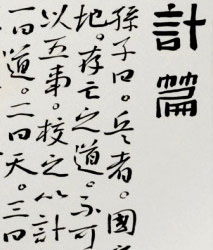 計篇
孫子曰。兵者。國
地。存亡之道。不可
以五事。校之以計
一曰道。二曰天。三曰